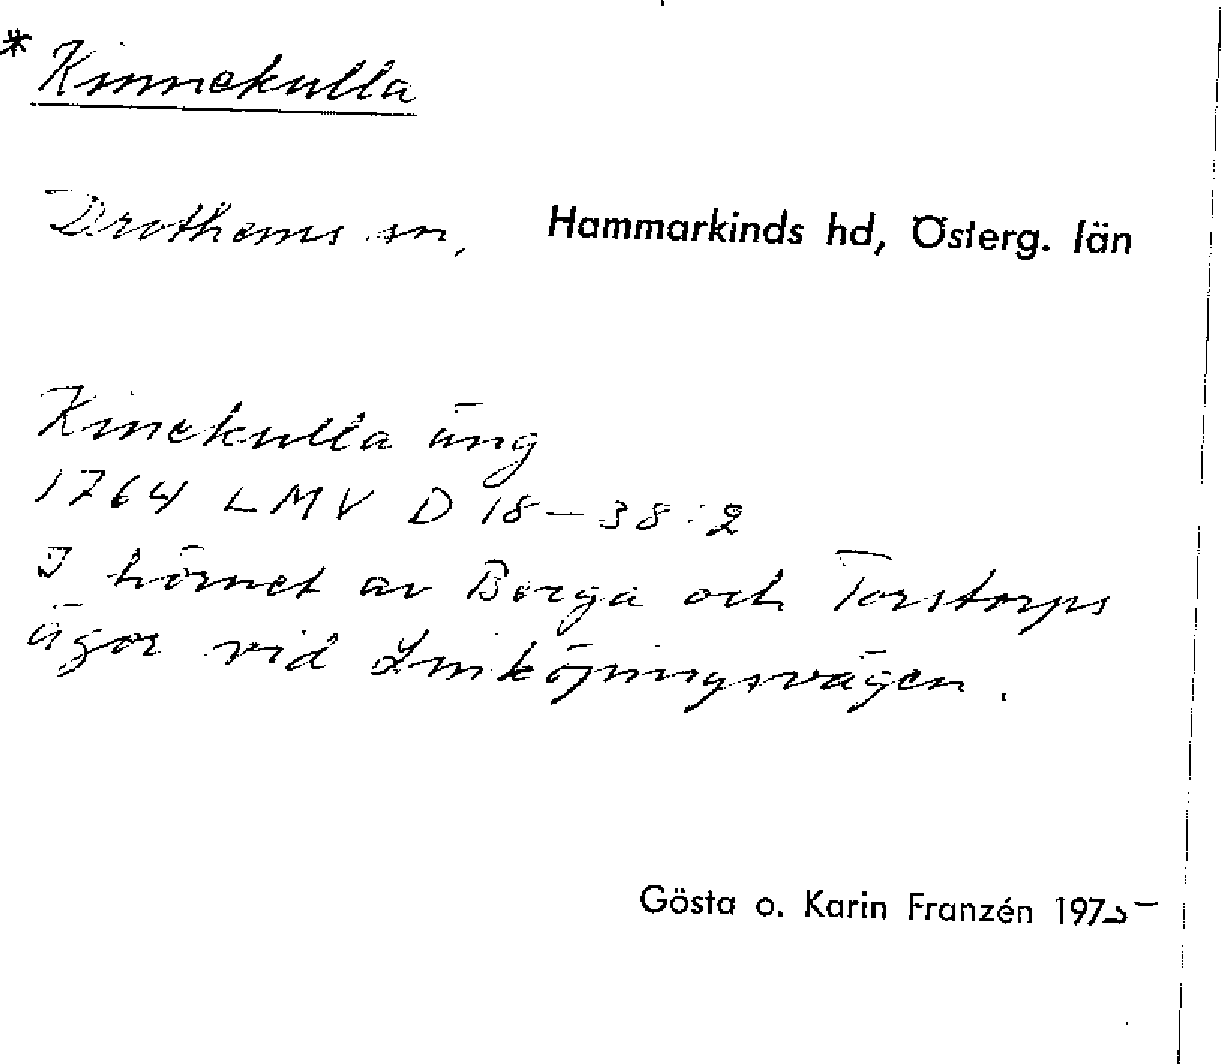 * Kinnekulla
Drothems sn, Hammarkinds hd, Österg. län
Kinekulla äng
1764 LMV D 18-38:2
I hörnet av Borga och Torstorps
ägor vid Linköpingsvägen.
Gösta o. Karin Franzén 1975